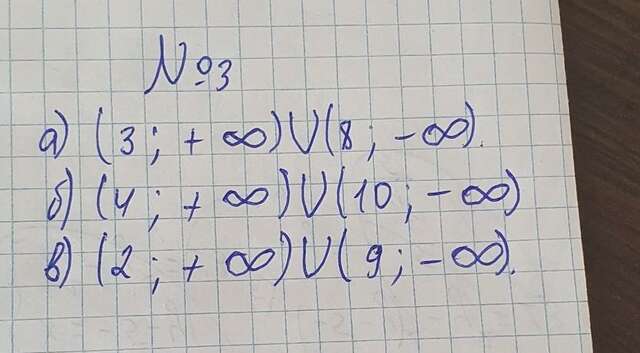 №3
а) (3; +∞)∪(8; -∞).
б) (4; +∞)∪(10; -∞)
в) (2; +∞)∪(9; -∞).